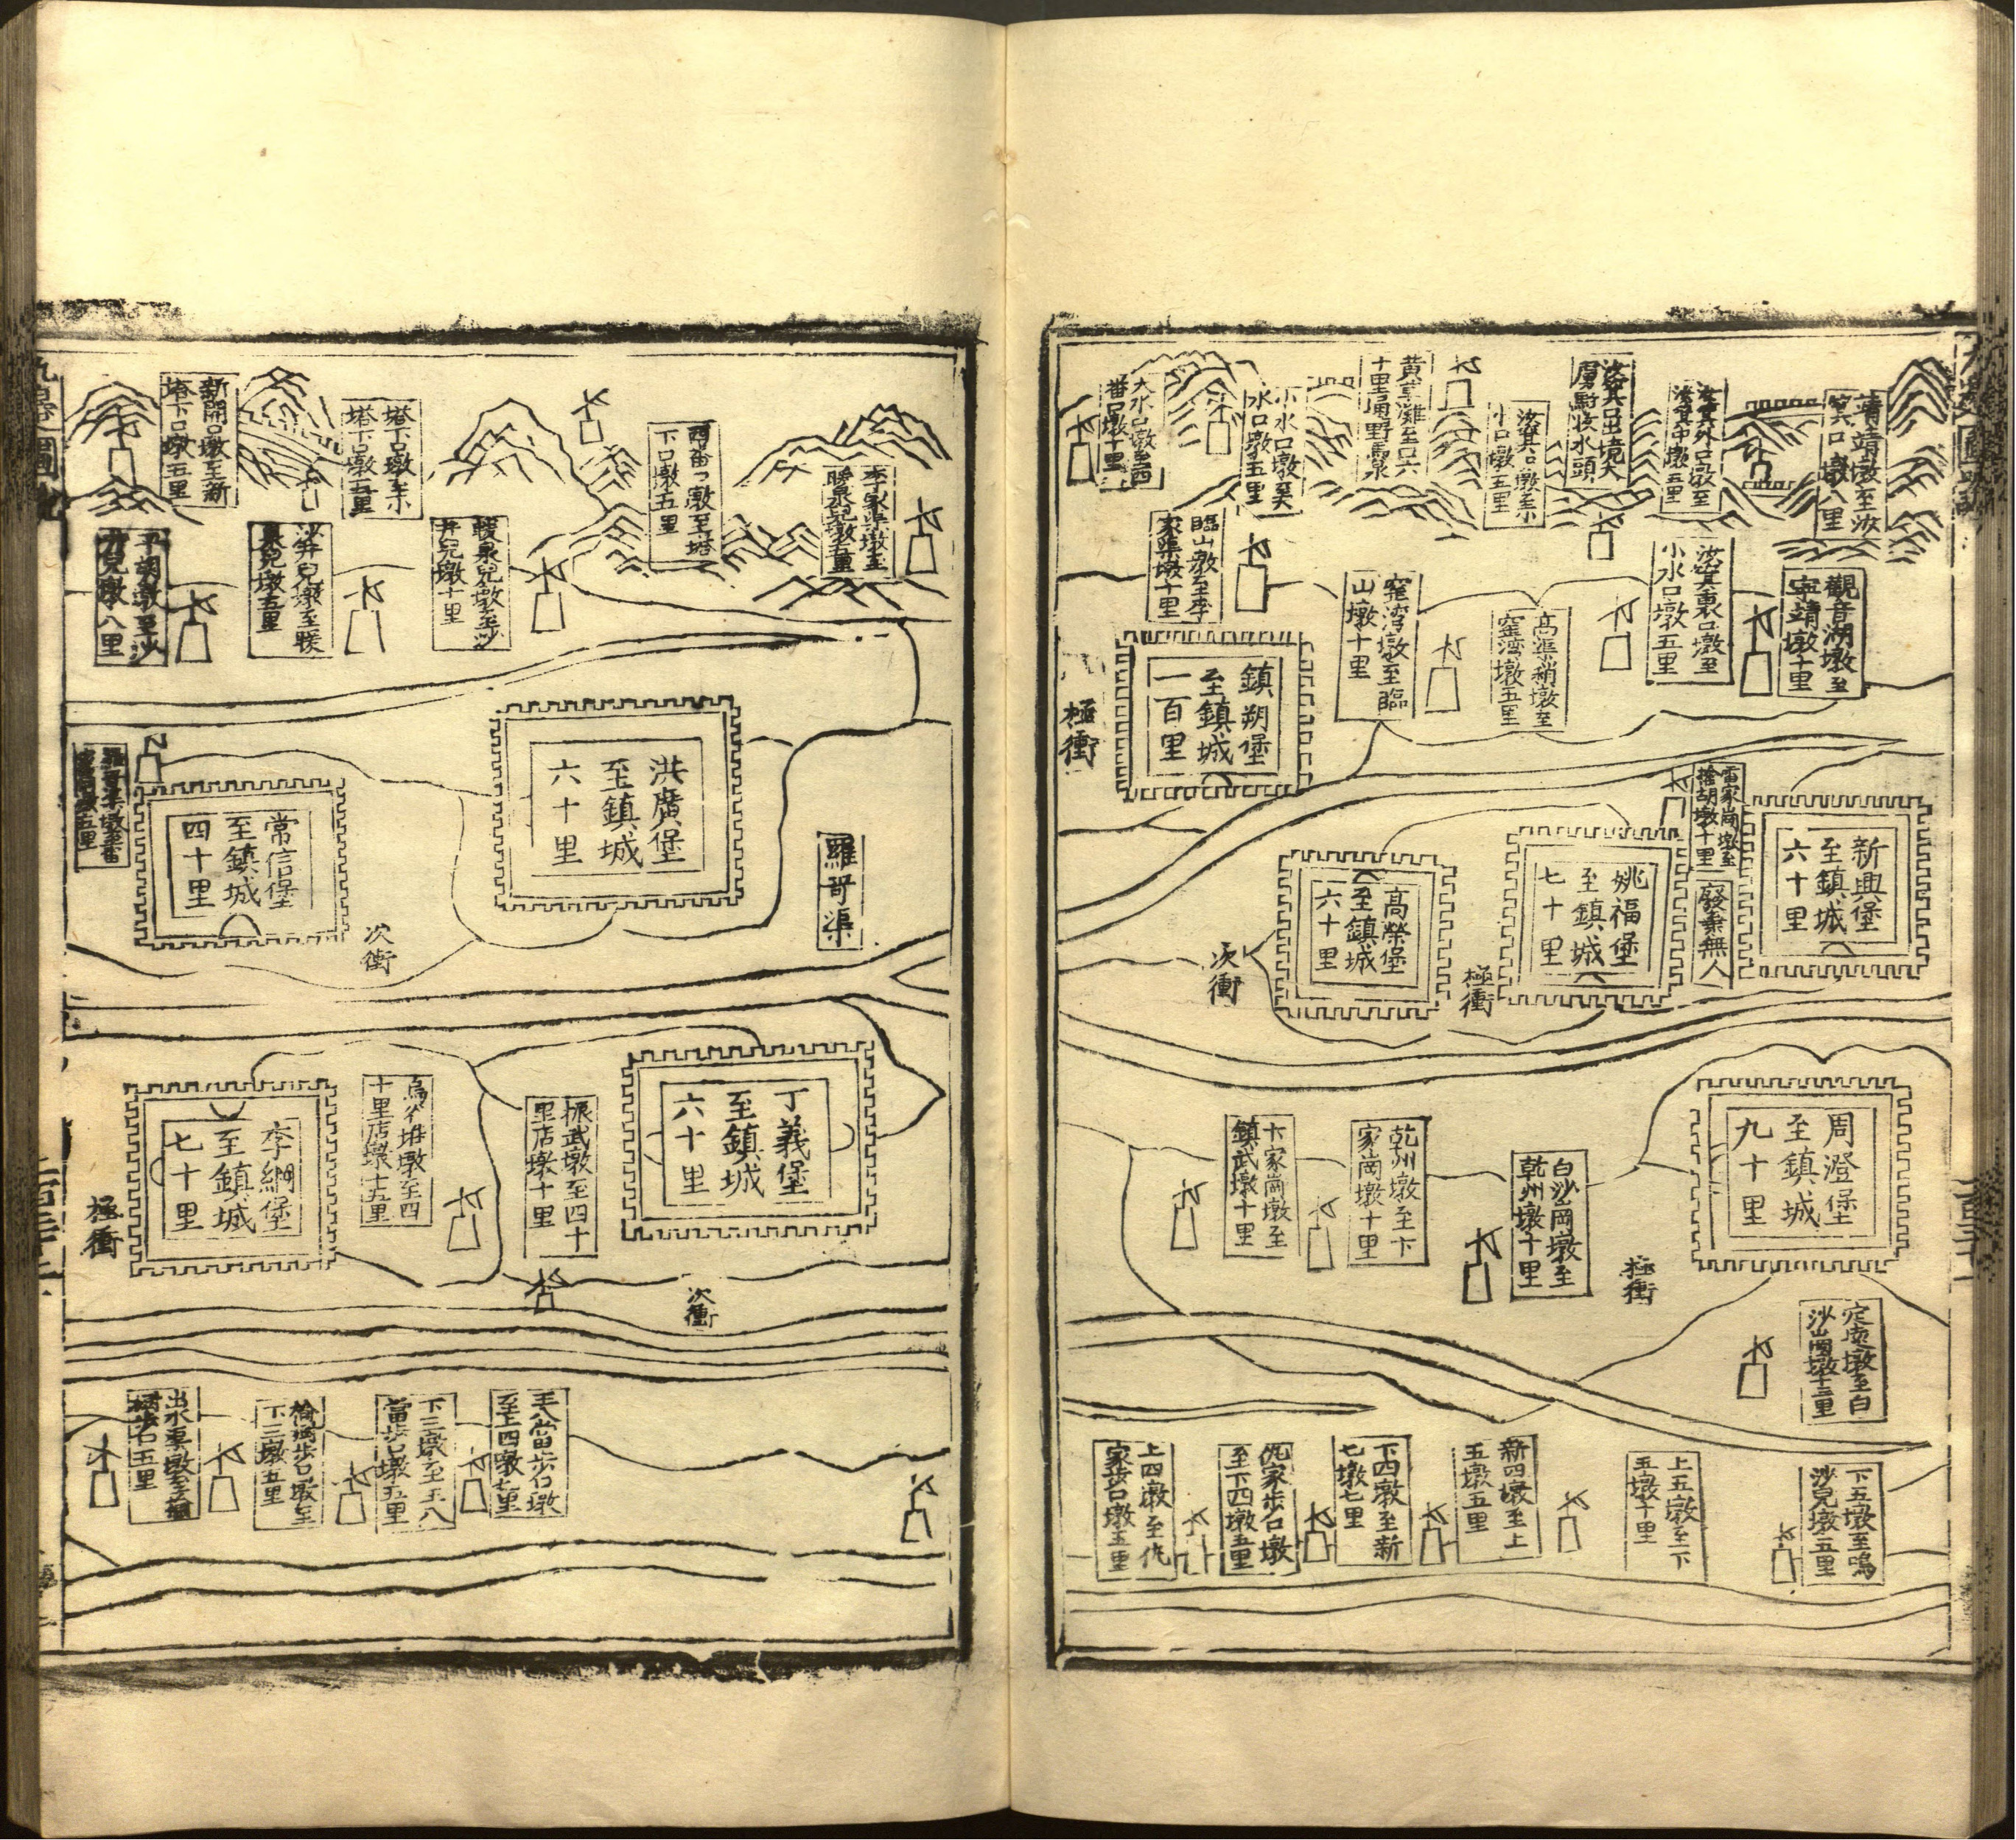 靖靖墩至汝
箕口墩八里
汝箕外口墩至
汝箕中墩五里
汝箕口出境大
虜駐牧水頭
汝箕口墩至小
小口墩五里
黃草灘至口六
十里通野馬泉
小水口墩至大
水口墩五里
大水口墩至西
番口墩十里
觀音湖墩至
寧靖墩十里
汝箕裏口墩至
小水口墩五里
高渠稍墩至
窰灣墩五里
窰灣墩至臨
山墩十里
臨山墩至李
家渠墩十里
鎮朔堡
至鎮城
一百里
極衝
新興堡
至鎮城
六十里
雷家崗墩至
捨胡墩十里
廢棄無人
姚福堡
至鎮城
七十里
極衝
高榮堡
至鎮城
六十里
次衝
周澄堡
至鎮城
九十里
極衝
白沙岡墩至
乾州墩十里
乾州墩至卞
家崗墩十里
卞家崗墩至
鎮武墩十里
定虜墩至白
下五墩至鳴
沙兒墩五里
上五墩至下
五墩十里
新四墩至上
五墩五里
下四墩至新
七墩七里
仇家步口墩
至下四墩五里
上四墩至仇
家步口墩五里
李家渠墩至
暖泉兒墩五里
西番口墩至塔
下口墩五里
塔下口墩至
塔下口墩五里
新開口墩至新
塔下口墩五里
暖泉兒墩至沙
井兒墩十里
沙井兒墩至暖
泉兒墩五里
平胡墩至沙
井兒墩八里
洪廣堡
至鎮城
六十里
羅哥渠
常信堡
至鎮城
四十里
次衝
丁義堡
至鎮城
六十里
振武墩至四十
里店墩十里
堆墩至四
十里店墩十五里
李綱堡
至鎮城
七十里
極衝
次衝
王八當步口墩
至上四墩七里
下三墩至王八
當步口墩五里
步口墩至
下三墩五里
出水
五里